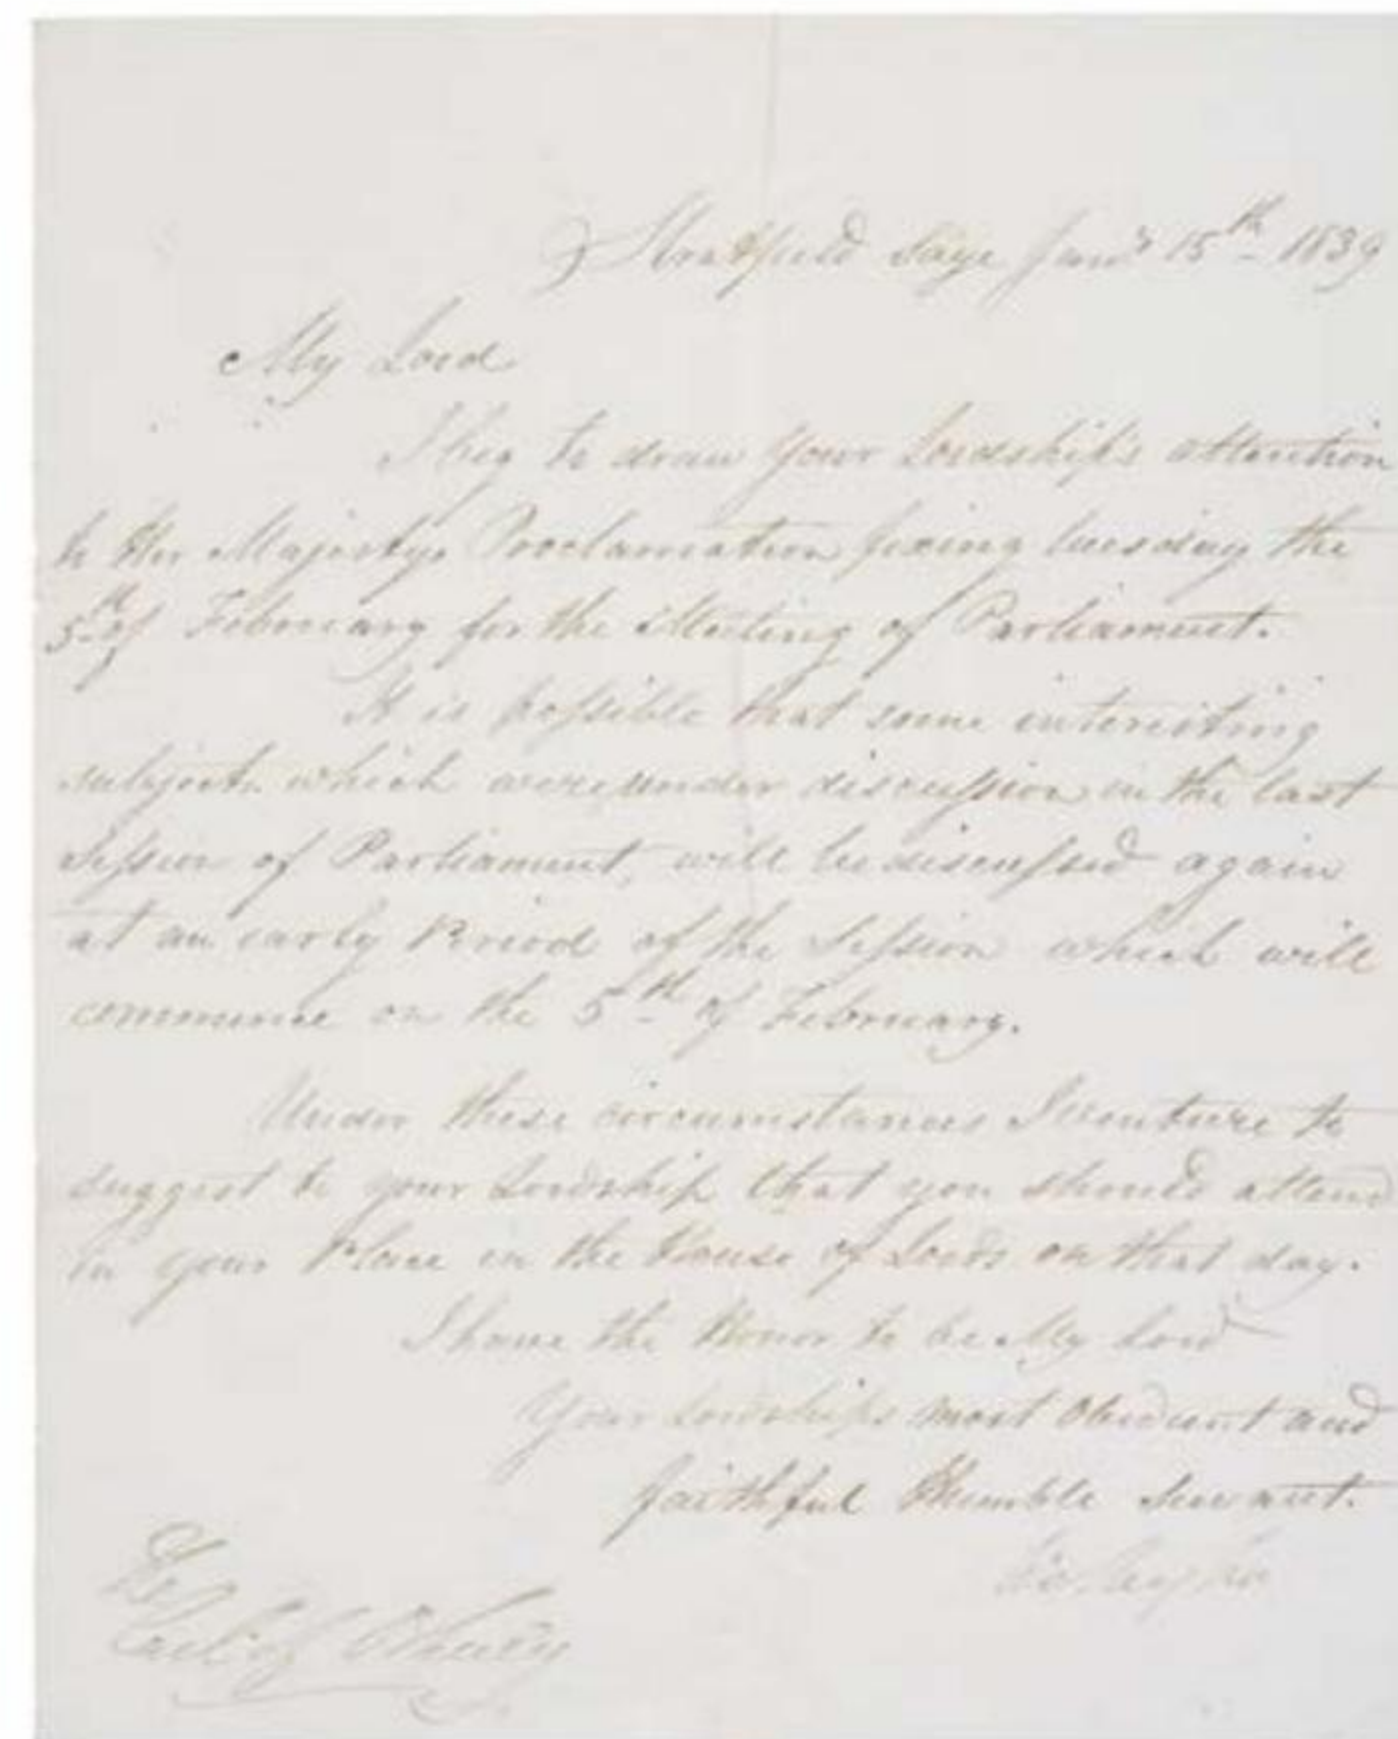 Strathfield Saye Jany 15th 1839
My Lord
I beg to draw your Lordship's attention
to Her Majestys Proclamation fixing tuesday the
5th of February for the Meeting of Parliament.
It is possible that some interesting
subjects which were under discussion in the last
Session of Parliament, will be discussed again
at an early Period of the Session which will
commence on the 5th of February.
Under these circumstances I venture to
suggest to your Lordship that you should attend
in your Place in the House of Lords on that day.
I have the Honor to be My Lord
Your Lordships most Obedient and
faithful Humble Servant.
Wellington
Earl of